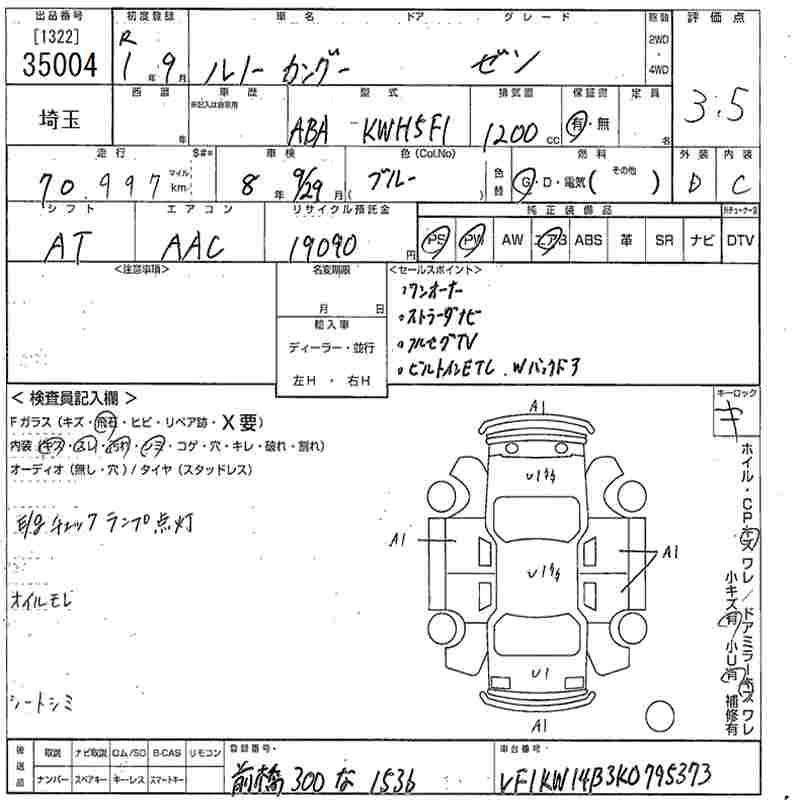 出品番号 初度登録 車名 ドア グレード 駆動 評価点
[1322] R 2WD
35004 1年 9月 ルノー カングー ゼン 4WD 3.5
埼玉 西暦 年 車歴 ※記入は自家用 型式 ABA-KWH5F1 排気量 1200cc 保証書 有・無 定員 名
走行 $#= 車検 色(Col.No) 燃料 外装 内装
70,997 マイル km 8年 9/29月 ブルー ( ) 色替 G・D・電気( その他 ) D C
シフト エアコン リサイクル預託金 純正装備品
AT AAC 19090円 PS PW AW エアB ABS 革 SR ナビ DTV
<注意事項> 名変期限 <セールスポイント>
月 日 ・ワンオーナー
輸入車 ・ストラーダナビ
ディーラー・並行 ・フルセグTV
左H・右H ・ビルトインETC . Wバックドア
<検査員記入欄> キーロック
Fガラス (キズ・飛石・ヒビ・リペア跡・X要) キ
内装 (キズ・スレ・汚れ・シミ・コゲ・穴・キレ・破れ・割れ)
オーディオ (無し・穴) / タイヤ (スタッドレス)
E/gチェックランプ点灯
オイルモレ
シートシミ
A1
U1キズ
A1 A1
U1キズ
U1
A1
ホイル・CPキズ ワレ / ドアミラーキズ ワレ
小キズ有 小U有 補修有
後送品 取説 ナビ取説 ロム/SD B-CAS リモコン 登録番号・ 車台番号・
ナンバー スペアキー キーレス スマートキー 前橋 300 な 1536 VF1KW14B3K0795373